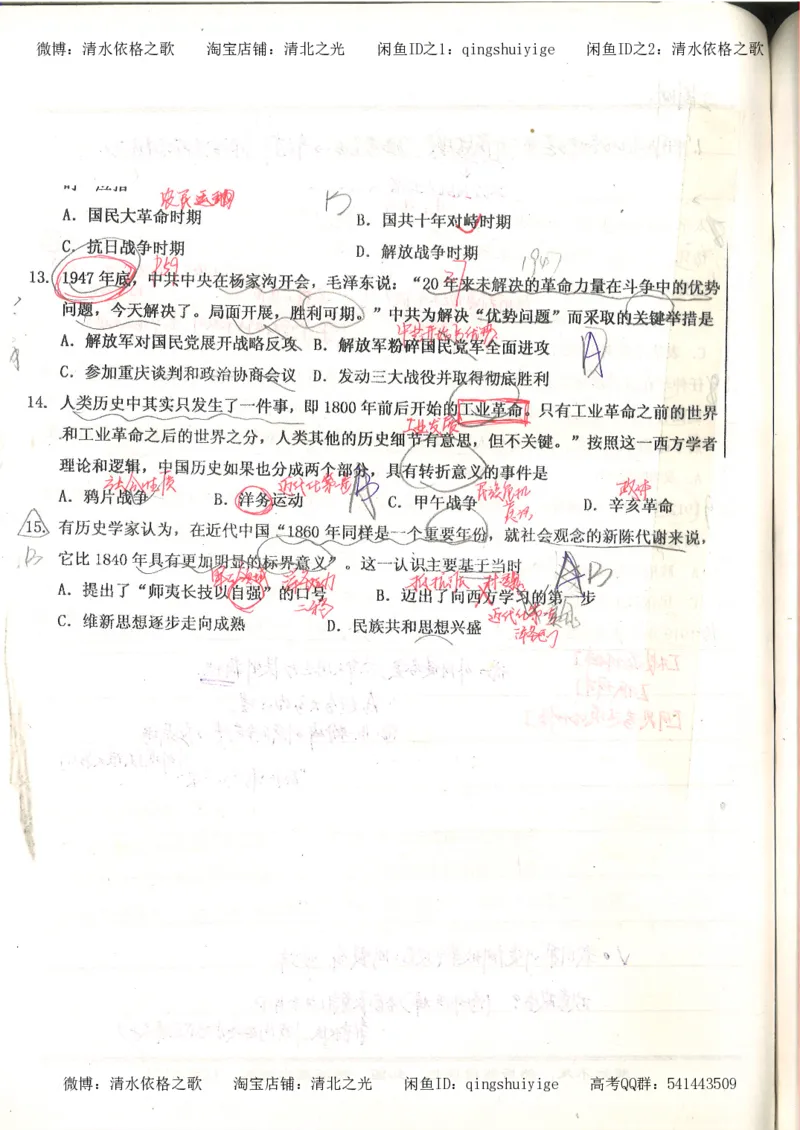 微博：清水依格之歌 淘宝店铺：清北之光 闲鱼ID之1：qingshuiyige 闲鱼ID之2：清水依格之歌
农民运动
A．国民大革命时期 B．国共十年对峙时期
C．抗日战争时期 D．解放战争时期
1947
13. 1947年底，中共中央在杨家沟开会，毛泽东说：“20年来未解决的革命力量在斗争中的优势
问题，今天解决了。局面开展，胜利可期。”中共为解决“优势问题”而采取的关键举措是
A．解放军对国民党展开战略反攻 B．解放军粉碎国民党军全面进攻
A
C．参加重庆谈判和政治协商会议 D．发动三大战役并取得彻底胜利
14. 人类历史中其实只发生了一件事，即1800年前后开始的工业革命。只有工业革命之前的世界
工业发展
和工业革命之后的世界之分，人类其他的历史细节有意思，但不关键。”按照这一西方学者
理论和逻辑，中国历史如果也分成两个部分，具有转折意义的事件是
社会性质 B 民族危机 政冲
A．鸦片战争 B．洋务运动 C．甲午战争 D．辛亥革命
15. 有历史学家认为，在近代中国“1860年同样是一个重要年份，就社会观念的新陈代谢来说，
B
它比1840年具有更加明显的标界意义”。这一认识主要基于当时
A B
洋务运动 抵抗派
A．提出了“师夷长技以自强”的口号 B．迈出了向西方学习的第一步
C．维新思想逐步走向成熟 D．民族共和思想兴盛
微博：清水依格之歌 淘宝店铺：清北之光 闲鱼ID：qingshuiyige 高考QQ群：541443509